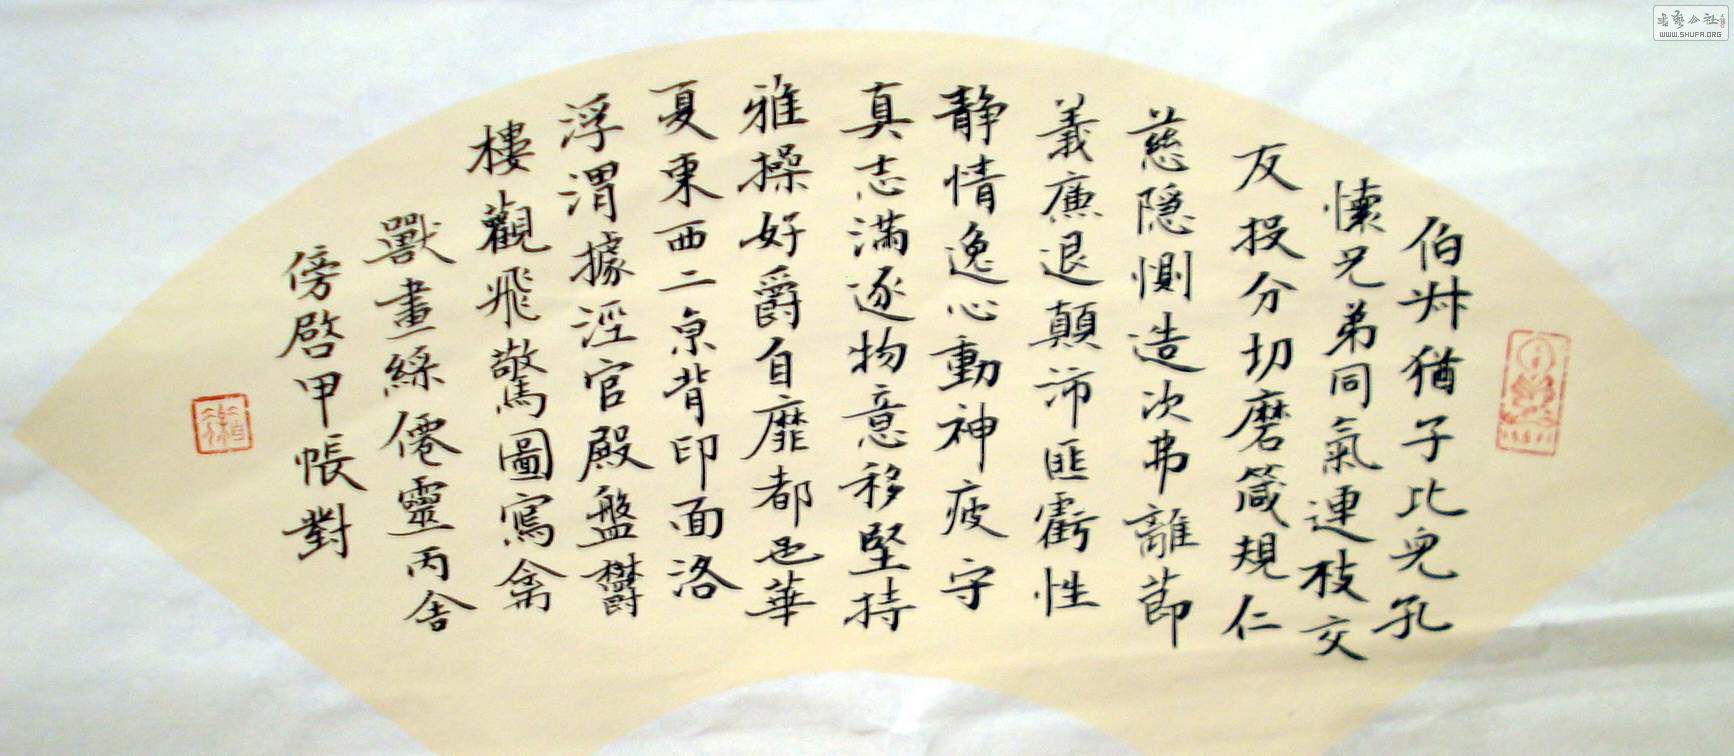 伯叔猶子比兒孔
懷兄弟同氣連枝交
友投分切磨箴規仁
慈隱惻造次弗離節
義廉退顛沛匪虧性
静情逸心動神疲守
真志滿逐物意移堅持
雅操好爵自靡都邑華
夏東西二亰背印面洛
浮渭據涇官殿盤鬱
樓觀飛驚圖寫禽
獸畫綵僊靈丙舍
傍啓甲帳對
WWW.SHUFA.ORG